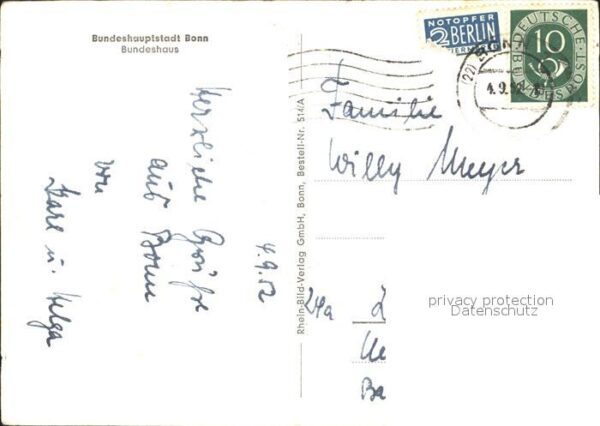 Bundeshauptstadt Bonn
Bundeshaus
NOTOPFER
2 BERLIN
STEUERMARKE
DEUTSCHE
BUNDESPOST
10
(22) BONN
4.9.52
4.9.52
Herzliche Grüße
aus Bonn
von
Karl u. Helga
Rhein-Bild-Verlag GmbH, Bonn, Bestell-Nr. 514/A
Familie
Willy Meyer
24a
privacy protection
Datenschutz